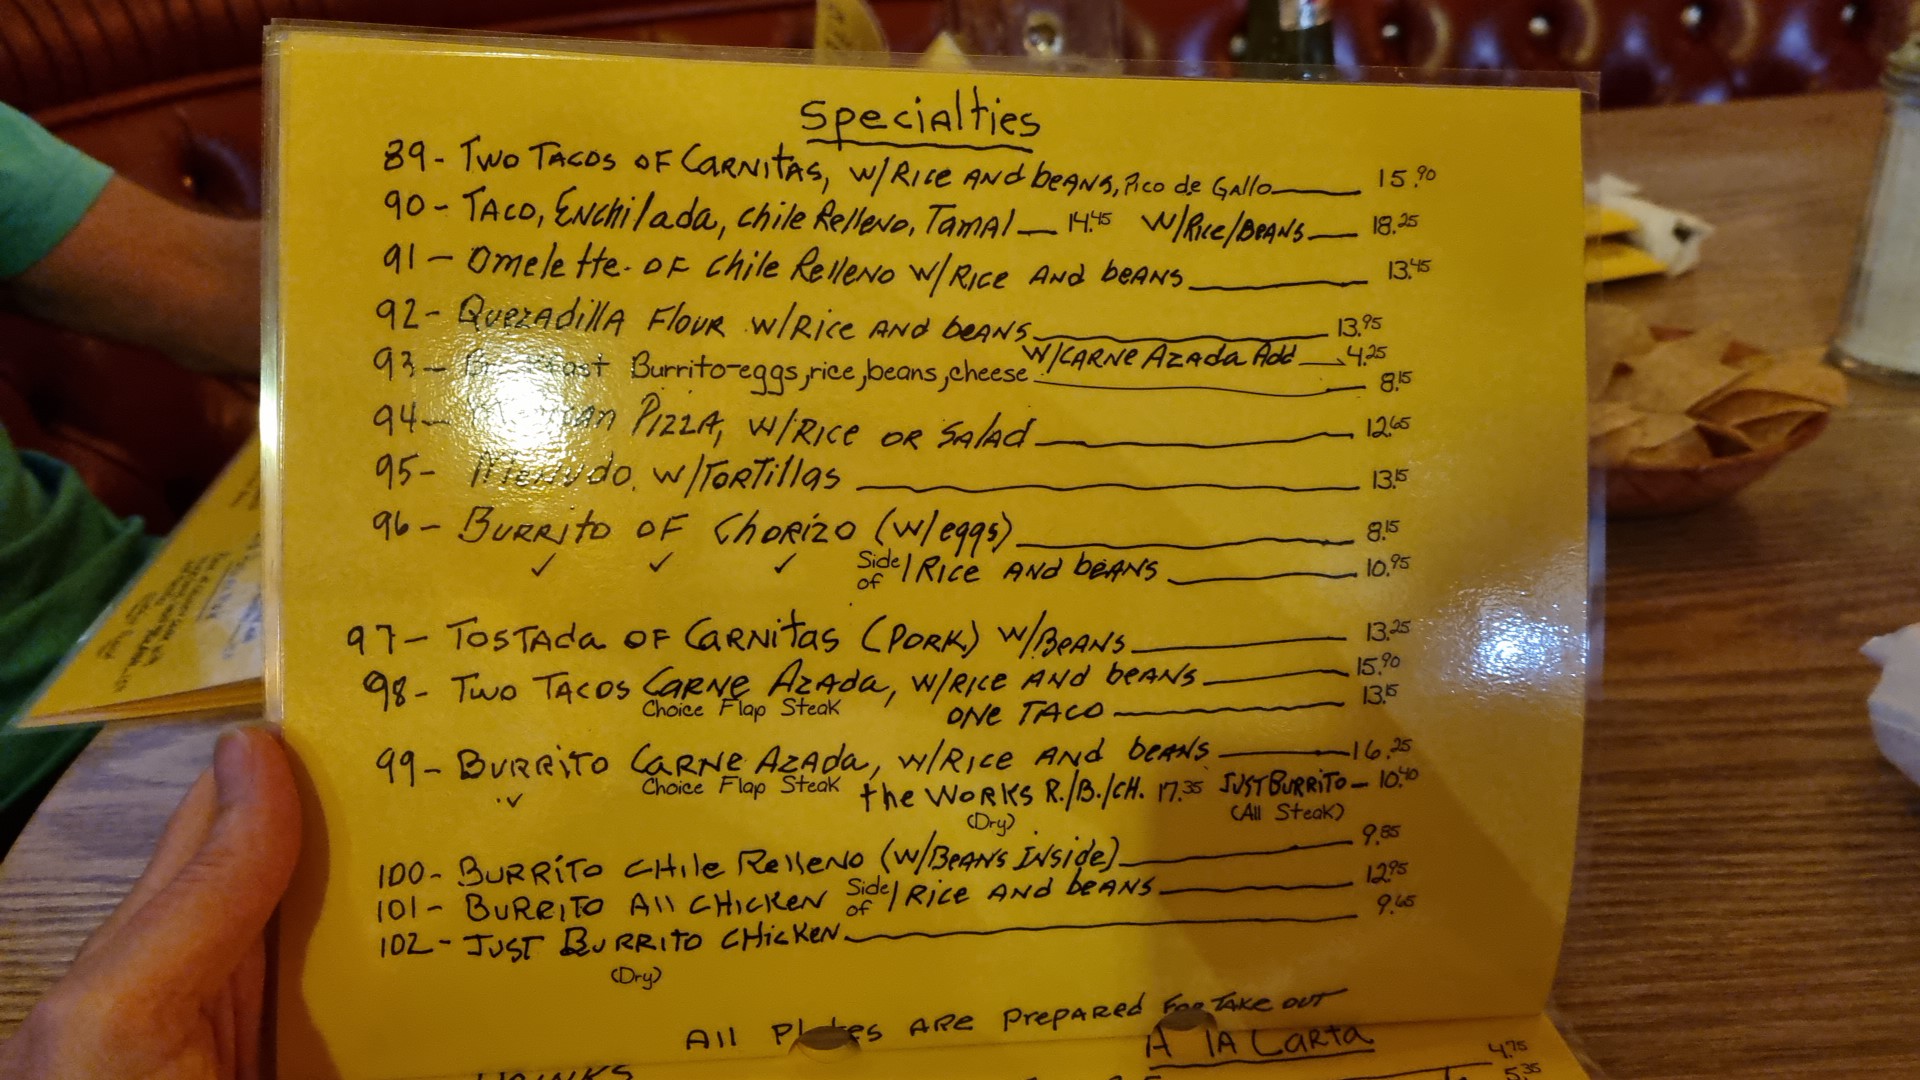 Specialties
89- Two Tacos of Carnitas, w/Rice and beans, Pico de Gallo 15.90
90- Taco, Enchilada, chile Relleno, Tamal 14.45 w/Rice/Beans 18.25
91- Omelette. of chile Relleno w/Rice and beans 13.45
92- Quezadilla Flour w/Rice and beans 13.95
w/Carne Azada Add 4.25
93- Breakfast Burrito-eggs,rice,beans,cheese 8.15
94- Mexican Pizza, w/Rice or Salad 12.65
95- Menudo. w/Tortillas 13.15
96- Burrito of Chorizo (w/eggs) 8.15
✓ ✓ ✓ Side of / Rice and beans 10.95
97- Tostada of Carnitas (Pork) w/Beans 13.25
98- Two Tacos Carne Azada, w/Rice and beans 15.90
Choice Flap Steak one Taco 13.15
99- Burrito Carne Azada, w/Rice and beans 16.25
✓ Choice Flap Steak the Works R./B./CH. 17.35 Just Burrito 10.40
(Dry) (All Steak)
100- Burrito Chile Relleno (w/Beans Inside) 9.85
101- Burrito All Chicken Side of / Rice and beans 12.95
102- Just Burrito Chicken 9.65
(Dry)
All Plates are prepared For Take out
A La Carta
4.75
5.35